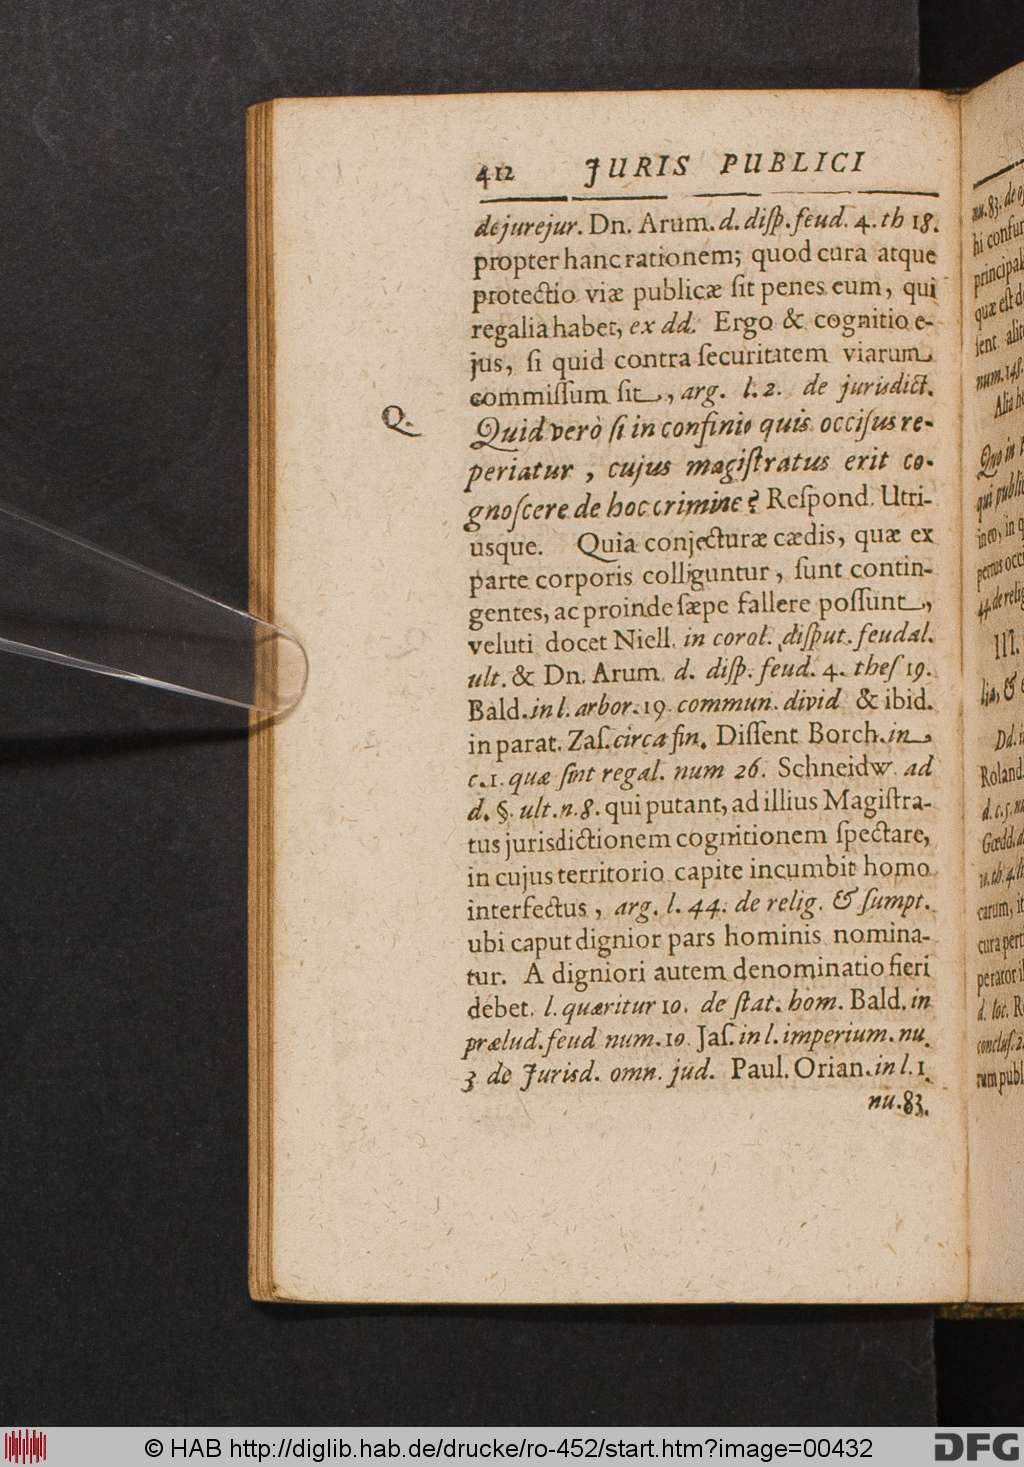 412 JURIS PUBLICI
de jurejur. Dn. Arum. d. diſp. feud. 4. th 18.
propter hanc rationem; quod cura atque
protectio viæ publicæ ſit penes eum, qui
regalia habet, ex dd. Ergo & cognitio e-
jus, ſi quid contra ſecuritatem viarum
commiſſum ſit, arg. l. 2. de jurisdict.
Q.
Quid verò ſi in confinio quis occiſus re-
periatur, cujus magiſtratus erit co-
gnoſcere de hoc crimine? Reſpond. Utri-
usque. Quia conjecturæ cædis, quæ ex
parte corporis colliguntur, ſunt contin-
gentes, ac proinde ſæpe fallere poſſunt,
veluti docet Niell. in corol. diſput. feudal.
ult. & Dn. Arum. d. diſp. feud. 4. theſ 19.
Bald. in l. arbor. 19 commun. divid & ibid.
in parat. Zaſ. circa fin. Diſſent Borch. in
c. 1. quæ ſint regal. num 26. Schneidw. ad
d. §. ult. n. 8. qui putant, ad illius Magiſtra-
tus jurisdictionem cognitionem ſpectare,
in cujus territorio capite incumbit homo
interfectus, arg. l. 44. de relig. & ſumpt.
ubi caput dignior pars hominis nomina-
tur. A digniori autem denominatio fieri
debet. l. quæritur 10. de ſtat. hom. Bald. in
prælud. feud num. 10. Jaſ. in l. imperium. nu.
3 de Jurisd. omn. jud. Paul. Orian. in l. 1.
nu. 83.
nu. 83. de
hi
principal
quæ eſt
ſent
num. 148.
Alia
Quo in
qui
in eo, in
pertus
44. de relig
III.
lia, &
Dd.
Roland
d. c. 5.
Gœdd.
carum,
cura pert
perator
d. loc.
concluſ. 2
rum publ
© HAB http://diglib.hab.de/drucke/ro-452/start.htm?image=00432
DFG